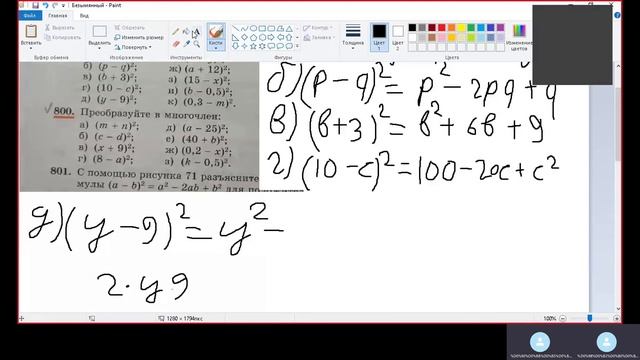 Безымянный - Paint
Файл Главная Вид
Вставить Вырезать Копировать
Выделить Обрезать Изменить размер Повернуть
Кисти
Фигуры
Контур Заливка
Толщина
Цвет 1 Цвет 2
Изменение цветов
Буфер обмена Изображение Инструменты Фигуры Цвета
б) (p − q)²; ж) (a + 12)²;
в) (b + 3)²; з) (15 − x)²;
г) (10 − c)²; и) (b − 0,5)²;
д) (y − 9)²; к) (0,3 − m)².
800. Преобразуйте в многочлен:
а) (m + n)²; д) (a − 25)²;
б) (c − d)²; е) (40 + b)²;
в) (x + 9)²; ж) (0,2 − x)²;
г) (8 − a)²; з) (k − 0,5)².
801. С помощью рисунка 71 разъясните
мулы (a − b)² = a² − 2ab + b² для
б) (p − q)² = p² − 2pq + q
в) (b+3)² = b² + 6b + 9
г) (10 − c)² = 100 − 20c + c²
д) (y − 9)² = y² −
2 · y 9
1280 × 1794пкс
100%